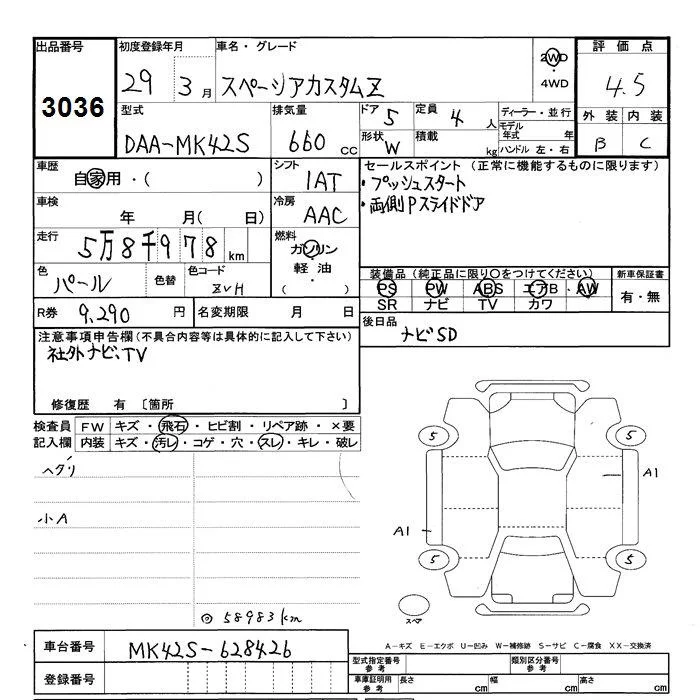 出品番号 初度登録年月 車名・グレード 2WD 評価点
3036 29 3月 スペーシアカスタムZ ・4WD 4.5
型式 排気量 ドア 5 定員 4人 ディーラー・並行 外装 内装
DAA-MK42S 660cc 形状 W 積載 kg モデル年式 年 B C
ハンドル 左・右
車歴 自家用・( ) シフト 1AT セールスポイント (正常に機能するものに限ります)
・プッシュスタート
車検 年 月( 日) 冷房 AAC ・両側Pスライドドア
走行 5万8千978km 燃料 ガソリン
軽油・( )
色 パール 色替 色コード ZVH 装備品 (純正品に限り○をつけてください) 新車保証書
PS PW ABS エアB AW 有・無
SR ナビ TV カワ
R券 9,290円 名変期限 月 日 後日品
ナビSD
注意事項申告欄(不具合内容等は具体的に記入して下さい)
社外ナビ、TV
修復歴 有 〔箇所 〕
検査員 FW キズ・飛石・ヒビ割・リペア跡・×要
記入欄 内装 キズ・汚レ・コゲ・穴・スレ・キレ・破レ
ヘタリ
小A
5 5
A1
A1
5 5
スペア
◎58983km
A-キズ E-エクボ U-凹み W-補修跡 S-サビ C-腐食 XX-交換済
車台番号 MK42S-628426
型式指定番号 参考 類別区分番号 参考
登録番号 車庫証明用 参考 長さ cm 幅 cm 高さ cm